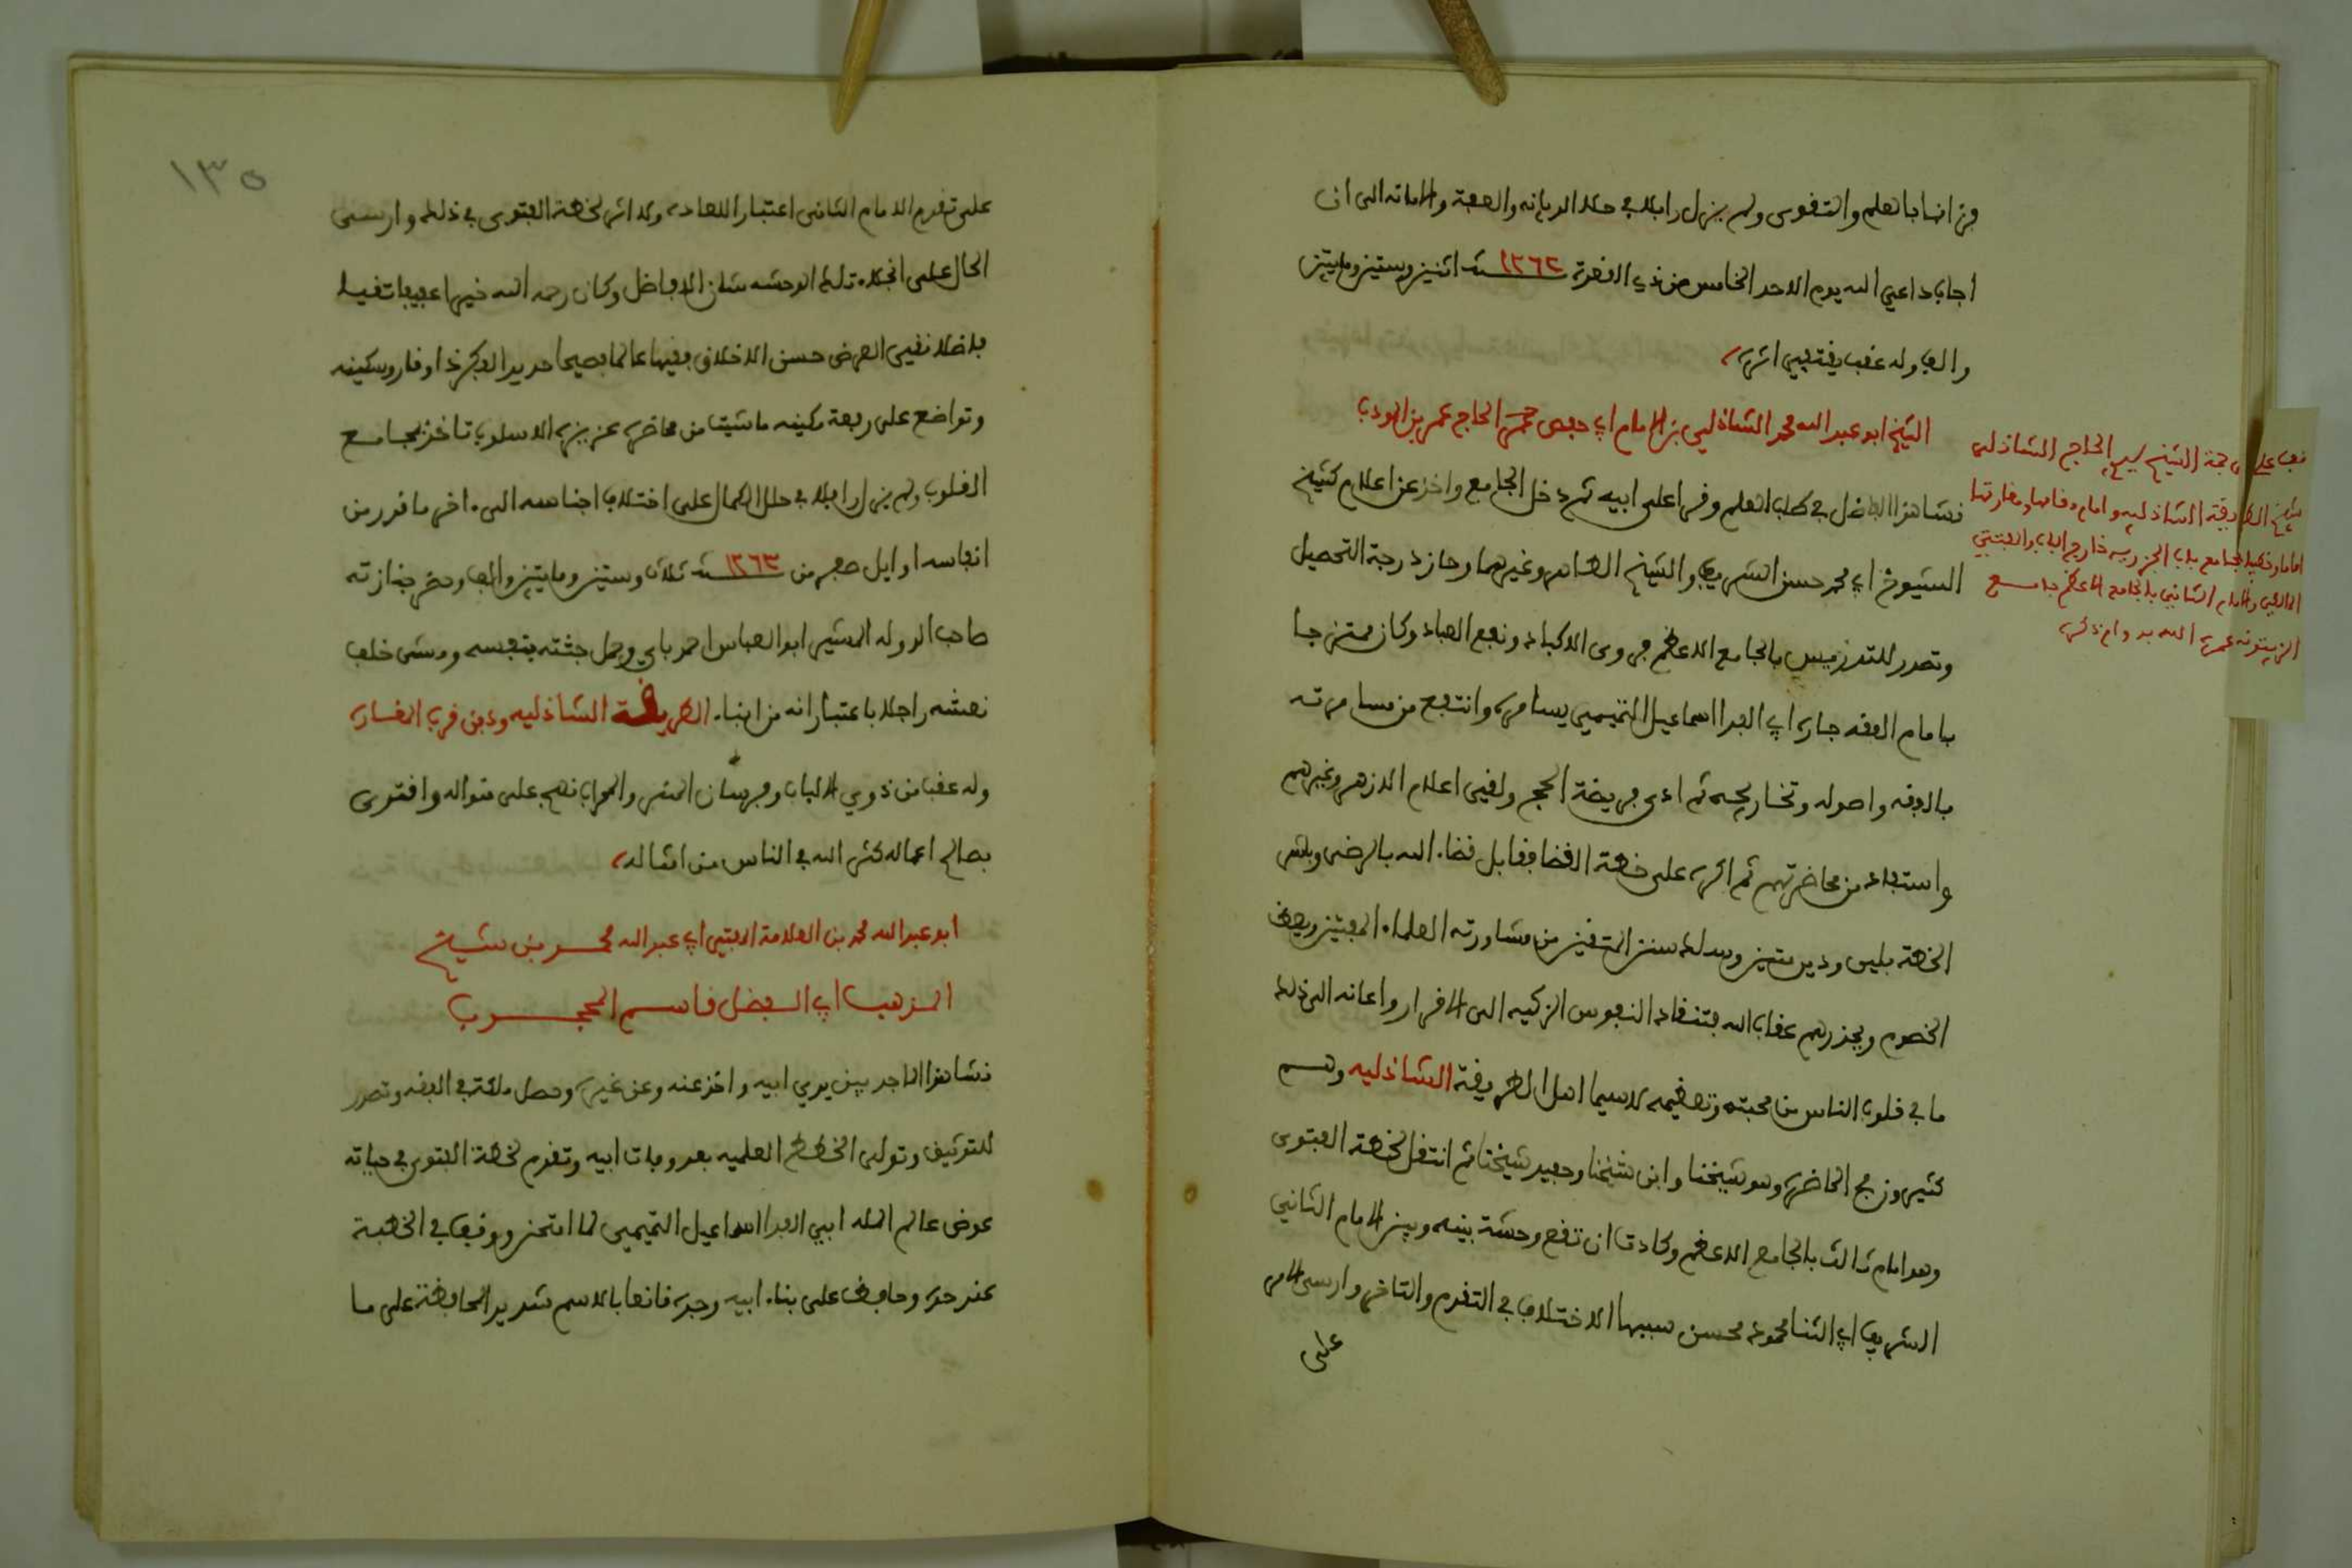 فزانها بالعلم والتقوى ولم يزل رافلا في حلل الديانه والعفة والامانه الى ان
أجاب داعي الله يوم الاحد الخامس من ذي القعدة سنة ١٢٦٢ اثنين وستين ومايتين
والف وله عقب يقتفي اثره
الشيخ ابو عبد الله محمد الشاذلي بن الامام ابي حفص الحاج عمر بن المودب
نشا هذا الفاضل في طلب العلم وقرا على ابيه ثم دخل الجامع واخذ عن اعلام كثيره
الشيوخ ابي محمد حسن الشريف والشيخ الطاهر وغيرهما وحاز درجة التحصيل
وتصدر للتدريس بالجامع الاعظم فروى الاكباد ونفع العباد وكان ممتزجا
بامام الفقه جاره ابي الفدا اسماعيل التميمي يسامره وانتفع من مسامرته
بالفقه واصوله وتخاريجه ثم ادى فريضة الحج ولقي اعلام الازهر وغيرهم
واستفاد من محاضرتهم ثم اكره على خطة القضا فقابل قضاء الله بالرضى وباشر
الخطة بلين ودين متين وسلك سنن المتقين من مشاورته العلماء المفتين ويعظ
الخصوم ويحذرهم عقاب الله فتنقاد النفوس الزكيه الى الاقرار واعانه الى ذلك
ما في قلوب الناس من محبته وتعظيمه لاسيما اهل الطريقة الشاذليه وهم
كثيرون في الحاضره وهو شيخنا وابن شيخنا وحفيد شيخنا ثم انتقل لخطة الفتوى
وهو امام ثالث بالجامع الاعظم وكادت ان تقع وحشة بينه وبين الامام الثاني
الشريف ابي الثنا محمود محسن سببها الاختلاف في التقدم والتاخر وارسى الامر
على
قف على ترجمة الشيخ سيدي الحاج الشاذلي
شيخ الطريقة الشاذليه وامام مقامها ومغارتها
اماما وخطيبا بجامع باب الجزيره خارج الباب والمفتي
المالكي والامام الثاني بالجامع الاعظم جامع
الزيتونه عمره الله بدوام ذكره
١٣٥
على تقدم الامام الثاني اعتبارا للعاده ولا اثر لخطة الفتوى في ذلك وارسى
الحال على انجلاء تلك الوحشه شان الافاضل وكان رحمه الله خيرا عفيفا تقيا
فاضلا نقي العرض حسن الاخلاق فقيها عالما فصيحا حديد الفكر ذا وقار وسكينه
وتواضع على رفعة مكينه ما شيت من محاضره عزيزة الاسلوب تاخذ بمجامع
القلوب ولم يزل رافلا في حلل الكمال على اختلاف اجناسه الى اخر ما قدر من
انفاسه اوايل صفر من سنة ١٢٦٣ ثلاث وستين ومايتين والف وحضر جنازته
صاحب الدوله المشير ابو العباس احمد باي وحمل جثته بنفسه ومشى خلف
نعشه راجلا باعتبار انه من ابناء الطريقة الشاذليه ودفن قرب المغاره
وله عقب من ذوي الالباب وفرسان المنبر والمحراب نهج على منواله واقتدى
بصالح اعماله كثر الله في الناس من امثاله
ابو عبد الله محمد بن العلامة المفتي ابي عبد الله محمد بن شيخ
المذهب ابي الفضل قاسم المحجوب
نشا هذا الماجد بين يدي ابيه واخذ عنه وعن غيره وحصل ملكة في الفقه وتصدر
للتوثيق وتولى الخطط العلميه بعد وفات ابيه وتقدم لخطة الفتوى في حياته
عوض عالم المله ابي الفدا اسماعيل التميمي لما امتحن ووقف في الخطبة
عند حده وحافظ على بناء ابيه وجده قانعا بالاسم شديد المحافظة على ما